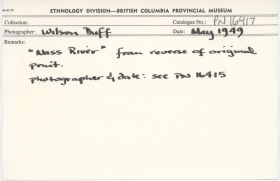 ETHNOLOGY DIVISION—BRITISH COLUMBIA PROVINCIAL MUSEUM
Collection: Catalogue No.: PN 16417
Photographer: Wilson Duff Date: May 1949
Remarks:
"Nass River" from reverse of original
print.
photographer & date: see PN 16415